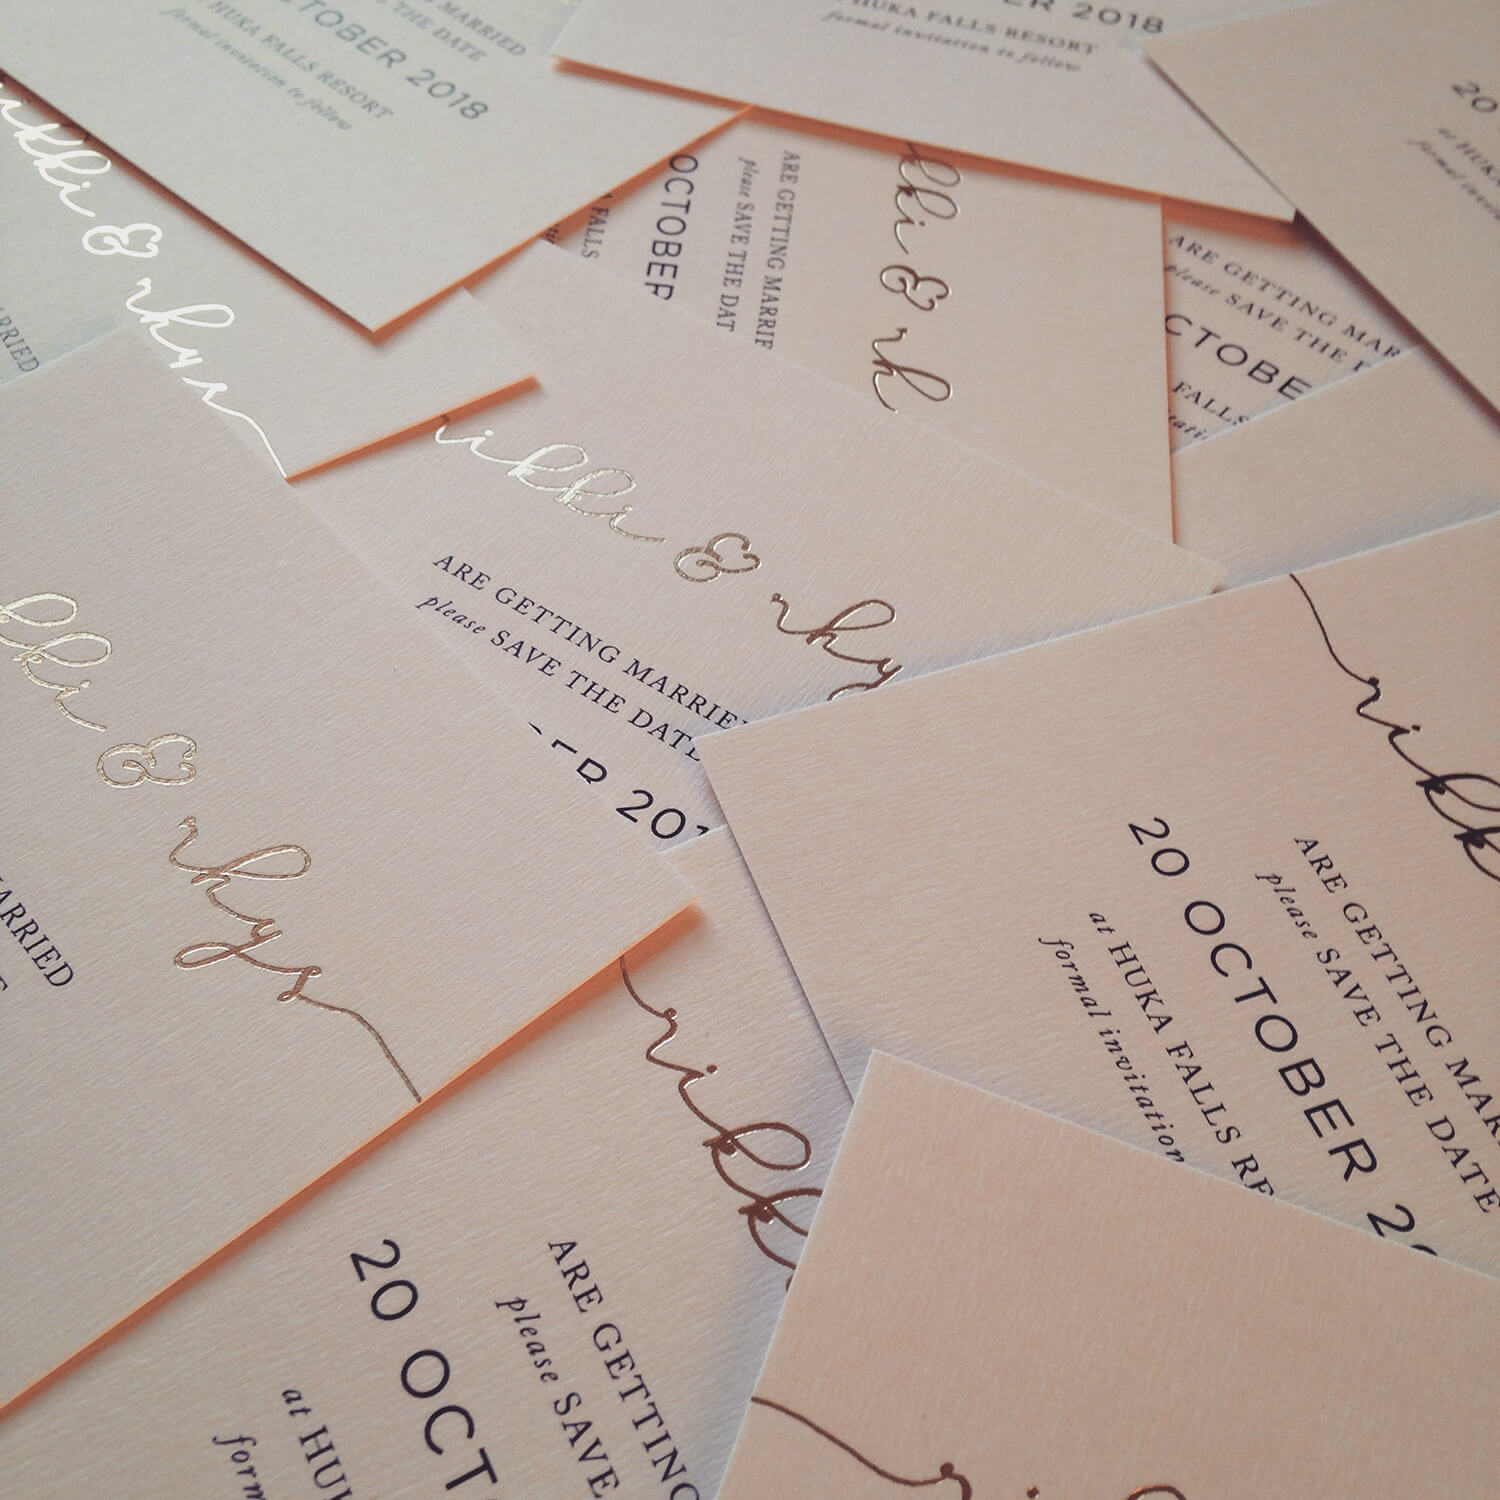 MARRIED
THE DATE
TOBER 2018
HUKA FALLS RESORT
formal invitation to follow
ER 2018
HUKA FALLS RESORT
formal invitation to follow
20
at HUKA
formal
kki & rhys
ARRIED
kki & rh
ARE GETTING MARRIE
please SAVE THE DAT
OCTOBER
FALLS
ARE GETTING MAR
please SAVE THE
CTOBE
FALLS
nikki & rhy
ARE GETTING MARRIED
please SAVE THE DATE
ER 201
kki & rhys
MARRIED
nikk
ARE GETTING MAR
please SAVE THE DATE
20 OCTOBER 20
at HUKA FALLS RE
formal invitation
nikk
ARE GETTING
please SAVE
20 OCT
at HUK
form